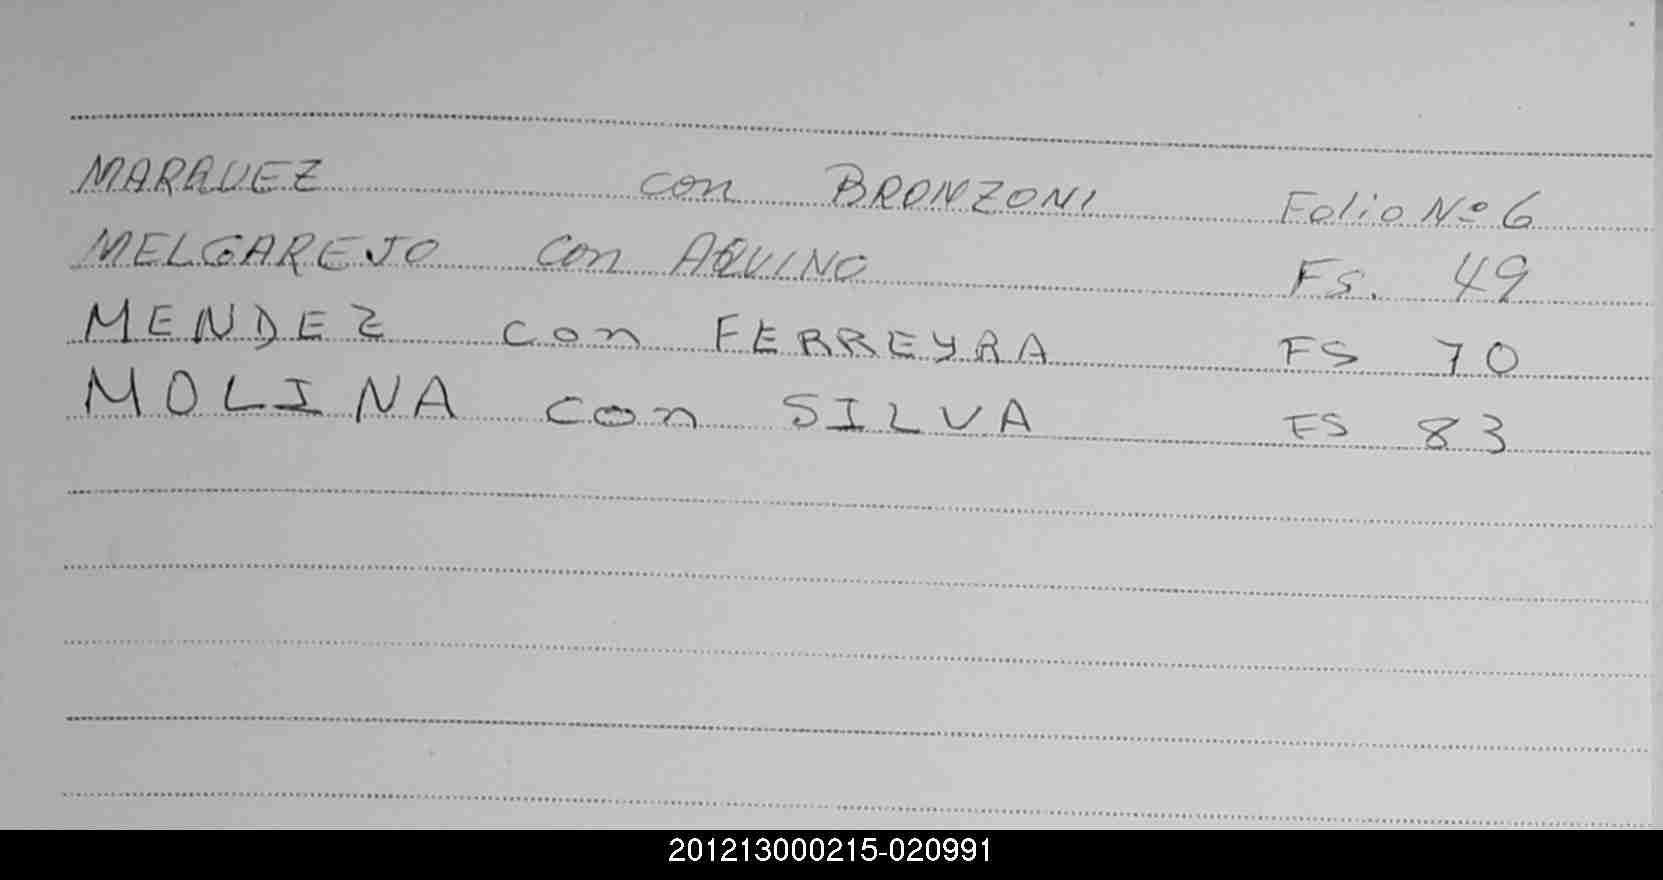 MARQUEZ con BRONZONI Folio Nº 6
MELGAREJO con AQUINO Fs. 49
MENDEZ con FERREYRA FS 70
MOLINA con SILVA FS 83
201213000215-020991